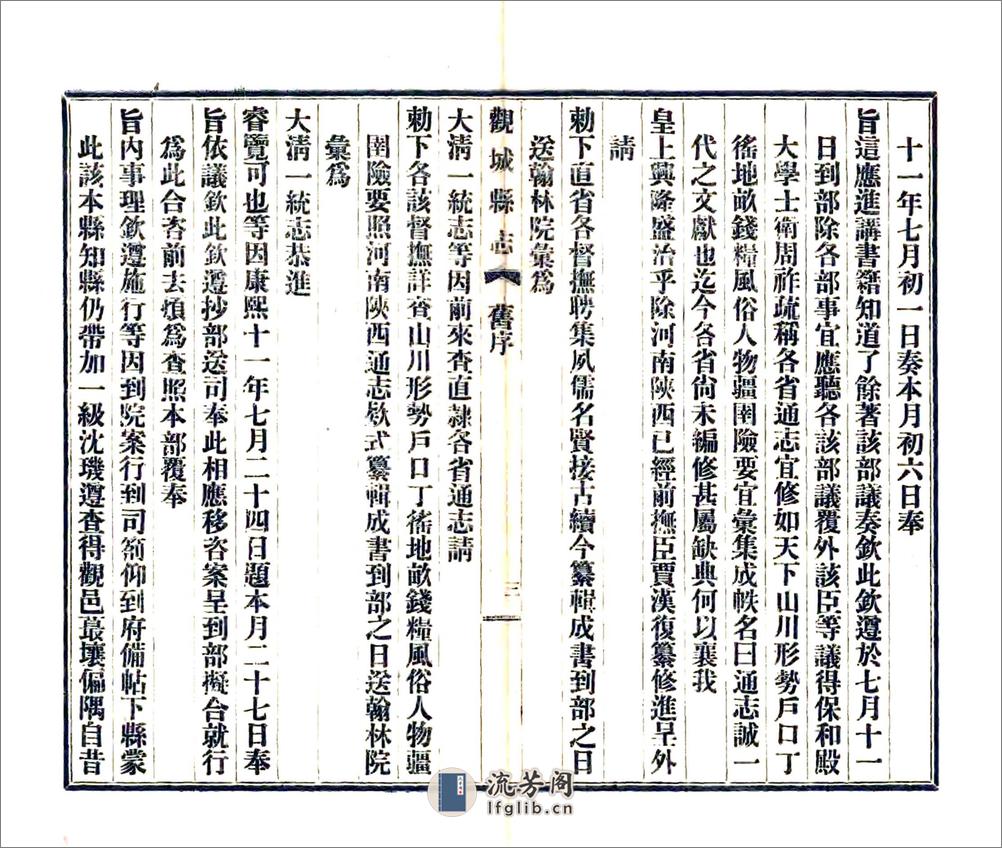 十一年七月初一日奏本月初六日奉
旨這應進講書籍知道了餘著該部議奏欽此欽遵於七月十一
日到部除各部事宜應聽各該部議覆外該臣等議得保和殿
大學士衛周祚疏稱各省通志宜修如天下山川形勢戶口丁
徭地畝錢糧風俗人物疆圉險要宜彙集成帙名曰通志誠一
代之文獻也迄今各省尚未編修甚屬缺典何以襄我
皇上興隆盛治乎除河南陝西已經前撫臣賈漢復纂修進呈外
請
勅下直省各督撫聘集夙儒名賢接古續今纂輯成書到部之日
送翰林院彙為
觀城縣志 舊序 三
大清一統志等因前來查直隸各省通志請
勅下各該督撫詳查山川形勢戶口丁徭地畝錢糧風俗人物疆
圉險要照河南陝西通志欵式纂輯成書到部之日送翰林院
彙為
大清一統志恭進
睿覽可也等因康熙十一年七月二十四日題本月二十七日奉
旨依議欽此欽遵抄部送司奉此相應移咨案呈到部擬合就行
為此合咨前去煩為查照本部覆奉
旨內事理欽遵施行等因到院案行到司劄仰到府備帖下縣蒙
此該本縣知縣仍帶加一級沈璣遵查得觀邑蕞壤偏隅自昔
流芳阁
lfglib.cn